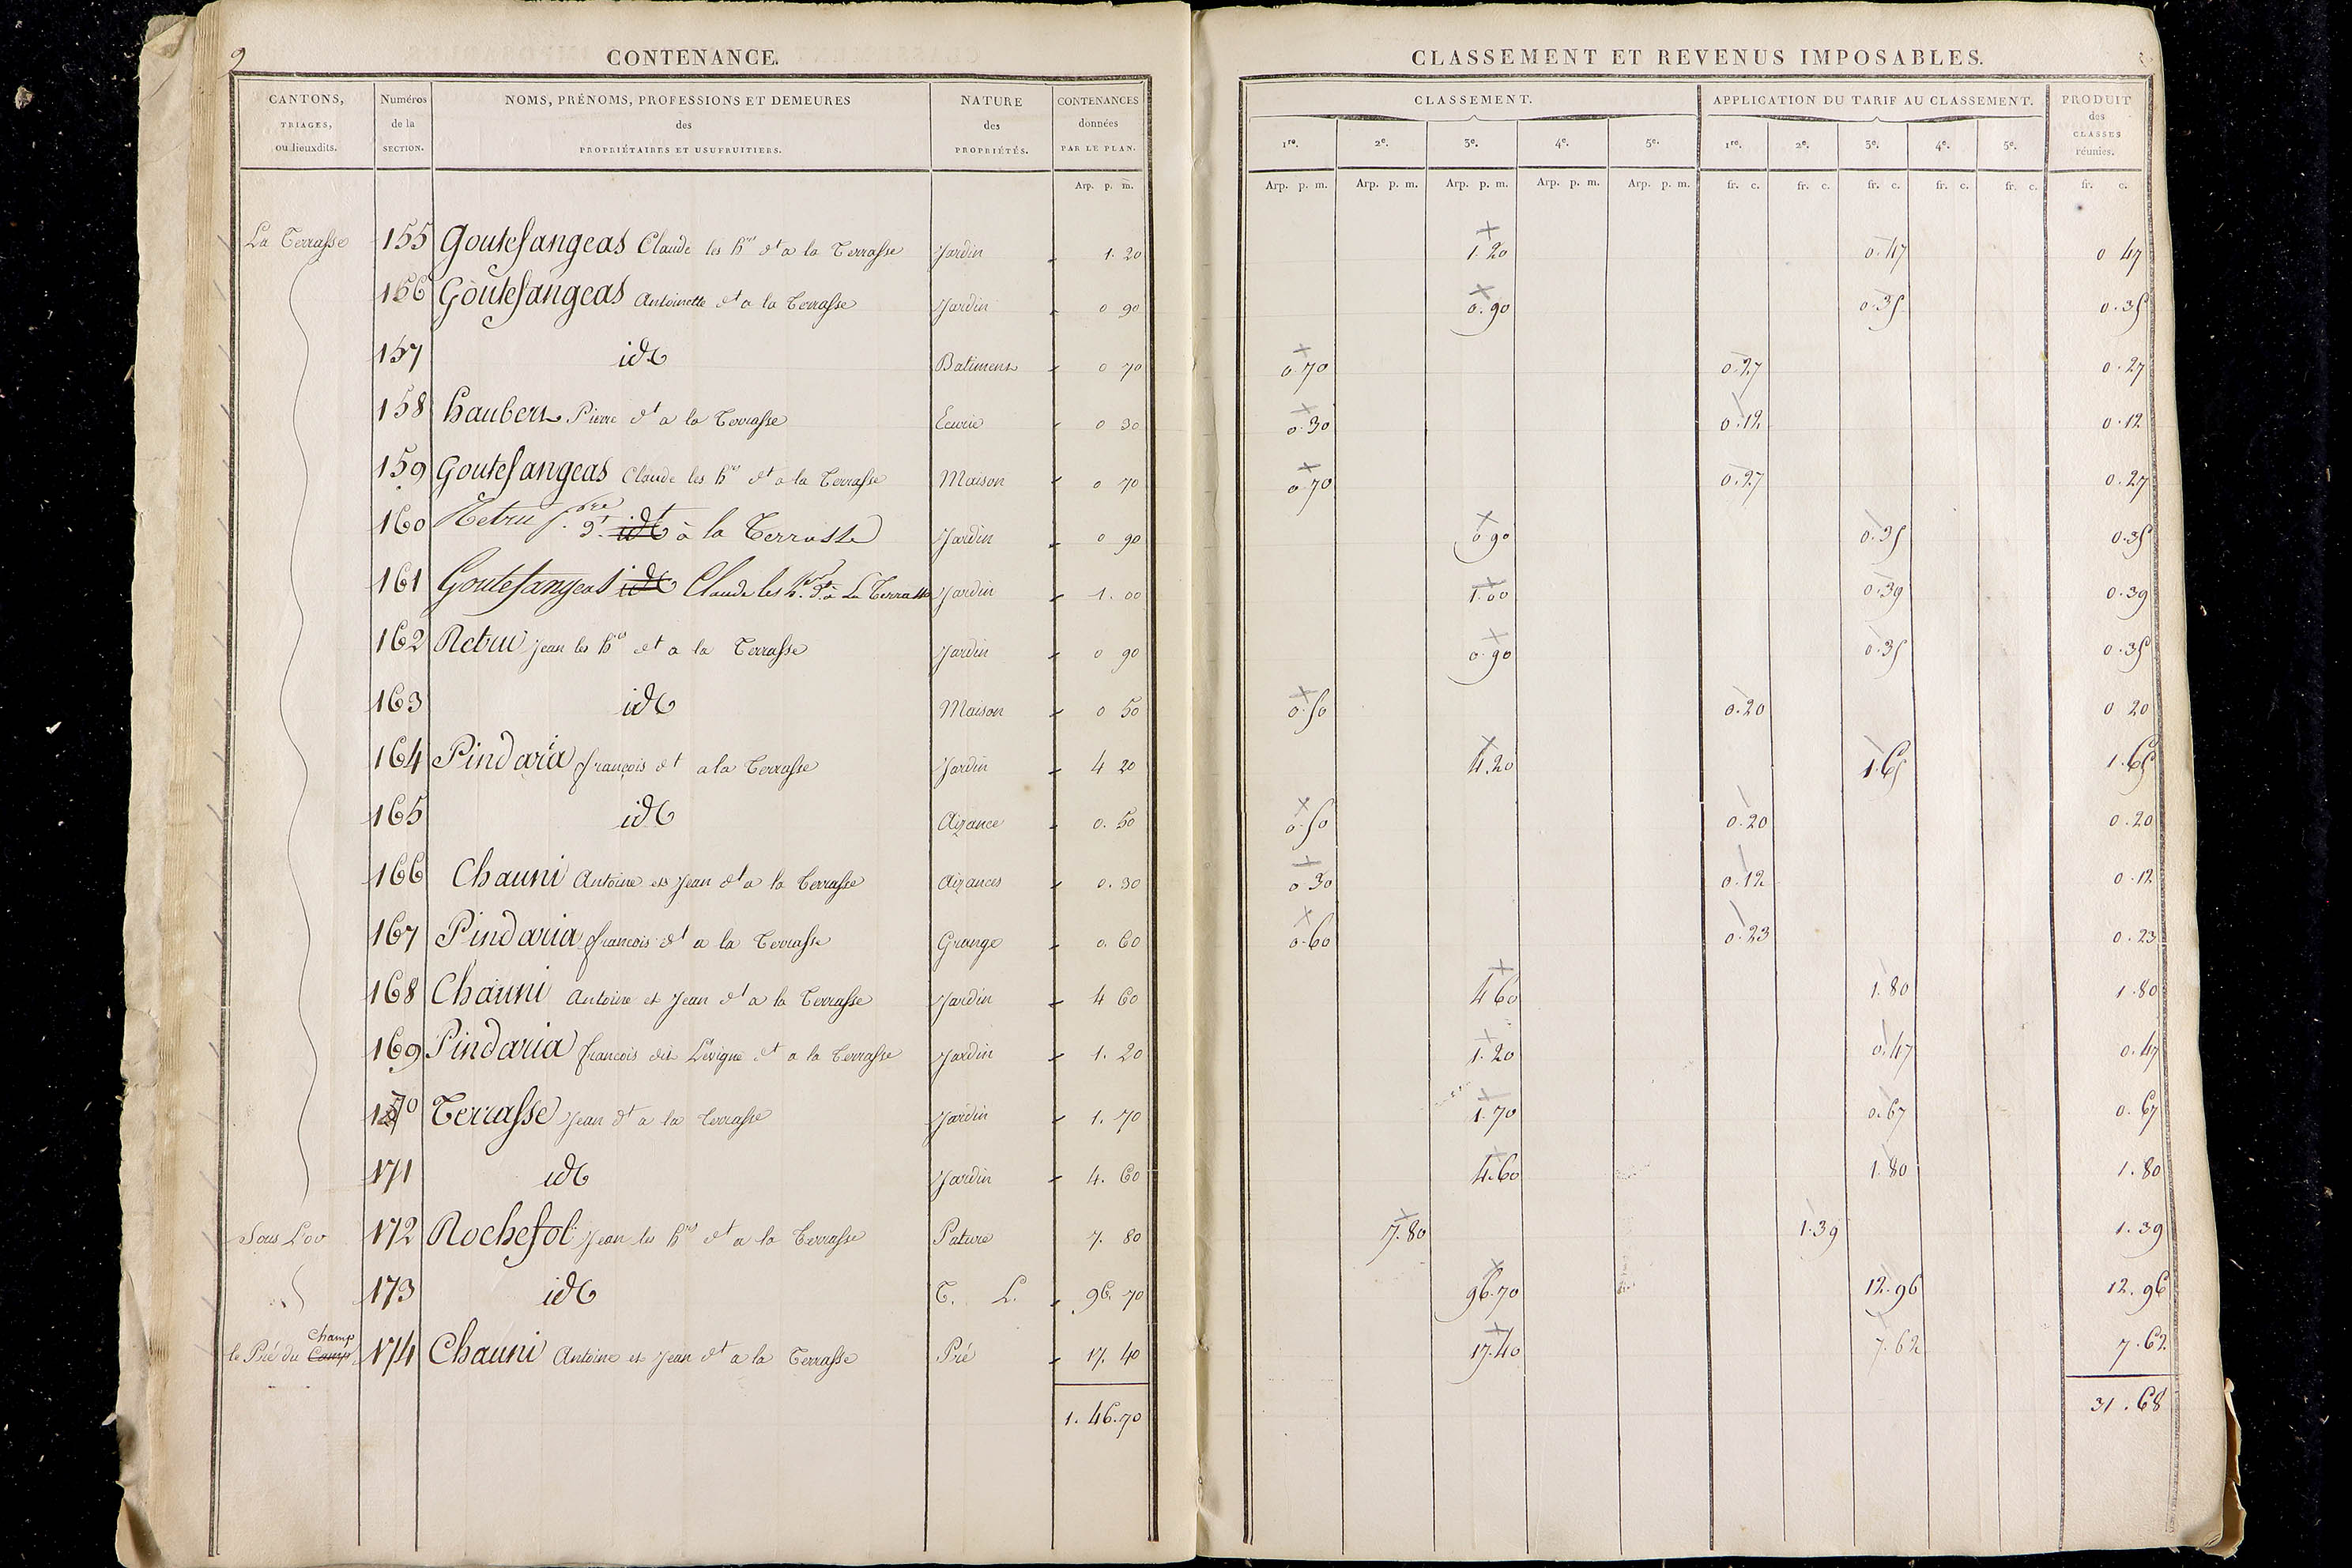 9
CONTENANCE.
CANTONS, TRIAGES, ou lieuxdits. | Numéros de la SECTION. | NOMS, PRÉNOMS, PROFESSIONS ET DEMEURES des PROPRIÉTAIRES ET USUFRUITIERS. | NATURE des PROPRIÉTÉS. | CONTENANCES données PAR LE PLAN.
Arp. p. m.
La Terrasse 155 Goutefangeas Claude les hrs dt a la Terrasse Jardin 1. 20
156 Goutefangeas Antoinette dt a la Terrasse Jardin 0 90
157 id Batimens 0 70
158 haubert Pierre dt a la Terrasse Ecurie 0 30
159 Goutefangeas Claude les hrs dt a la Terrasse Maison 0 70
160 Retru dt. id à la Terrasse Jardin 0 90
161 Goutefangeas id Claude les hrs dt à La Terrasse Jardin 1. 00
162 Retru Jean les hrs dt a la Terrasse Jardin 0 90
163 id Maison 0 50
164 Pindaria françois dt a la Terrasse Jardin 4 20
165 id Aizance 0. 50
166 Chauni Antoine et Jean dt a la Terrasse Aizances 0. 30
167 Pindaria francois dt a la Terrasse Grange 0. 60
168 Chauni Antoine et Jean dt a la Terrasse Jardin 4 60
169 Pindaria francois dit Lévigne dt a la Terrasse Jardin 1. 20
170 Terrasse Jean dt a la Terrasse Jardin 1. 70
171 id Jardin 4. 60
Sous L'ov 172 Rochefol Jean les hrs dt a la Terrasse Pature 7. 80
173 id T. L. 96. 70
Champ
le Pré du Camp 174 Chauni Antoine et Jean dt a la Terrasse Pré 17. 40
1. 46. 70
CLASSEMENT ET REVENUS IMPOSABLES.
CLASSEMENT. | APPLICATION DU TARIF AU CLASSEMENT. | PRODUIT des CLASSES réunies.
1re. 2e. 3e. 4e. 5e. 1re. 2e. 3e. 4e. 5e.
Arp. p. m. Arp. p. m. Arp. p. m. Arp. p. m. Arp. p. m. fr. c. fr. c. fr. c. fr. c. fr. c. fr. c.
1. 20 0. 47 0 47
0. 90 0. 35 0. 35
0. 70 0. 27 0. 27
0. 30 0. 12 0. 12
0 70 0. 27 0. 27
0 90 0. 35 0. 35
1. 00 0. 39 0. 39
0. 90 0. 35 0. 35
0. 50 0. 20 0 20
4. 20 1. 65 1. 65
0. 50 0. 20 0. 20
0 30 0. 12 0. 12
0. 60 0. 23 0. 23
4 60 1. 80 1. 80
1. 20 0. 47 0. 47
1. 70 0. 67 0. 67
4. 60 1. 80 1. 80
7. 80 1. 39 1. 39
96. 70 12. 96 12. 96
17. 40 7. 62 7. 62
31. 68